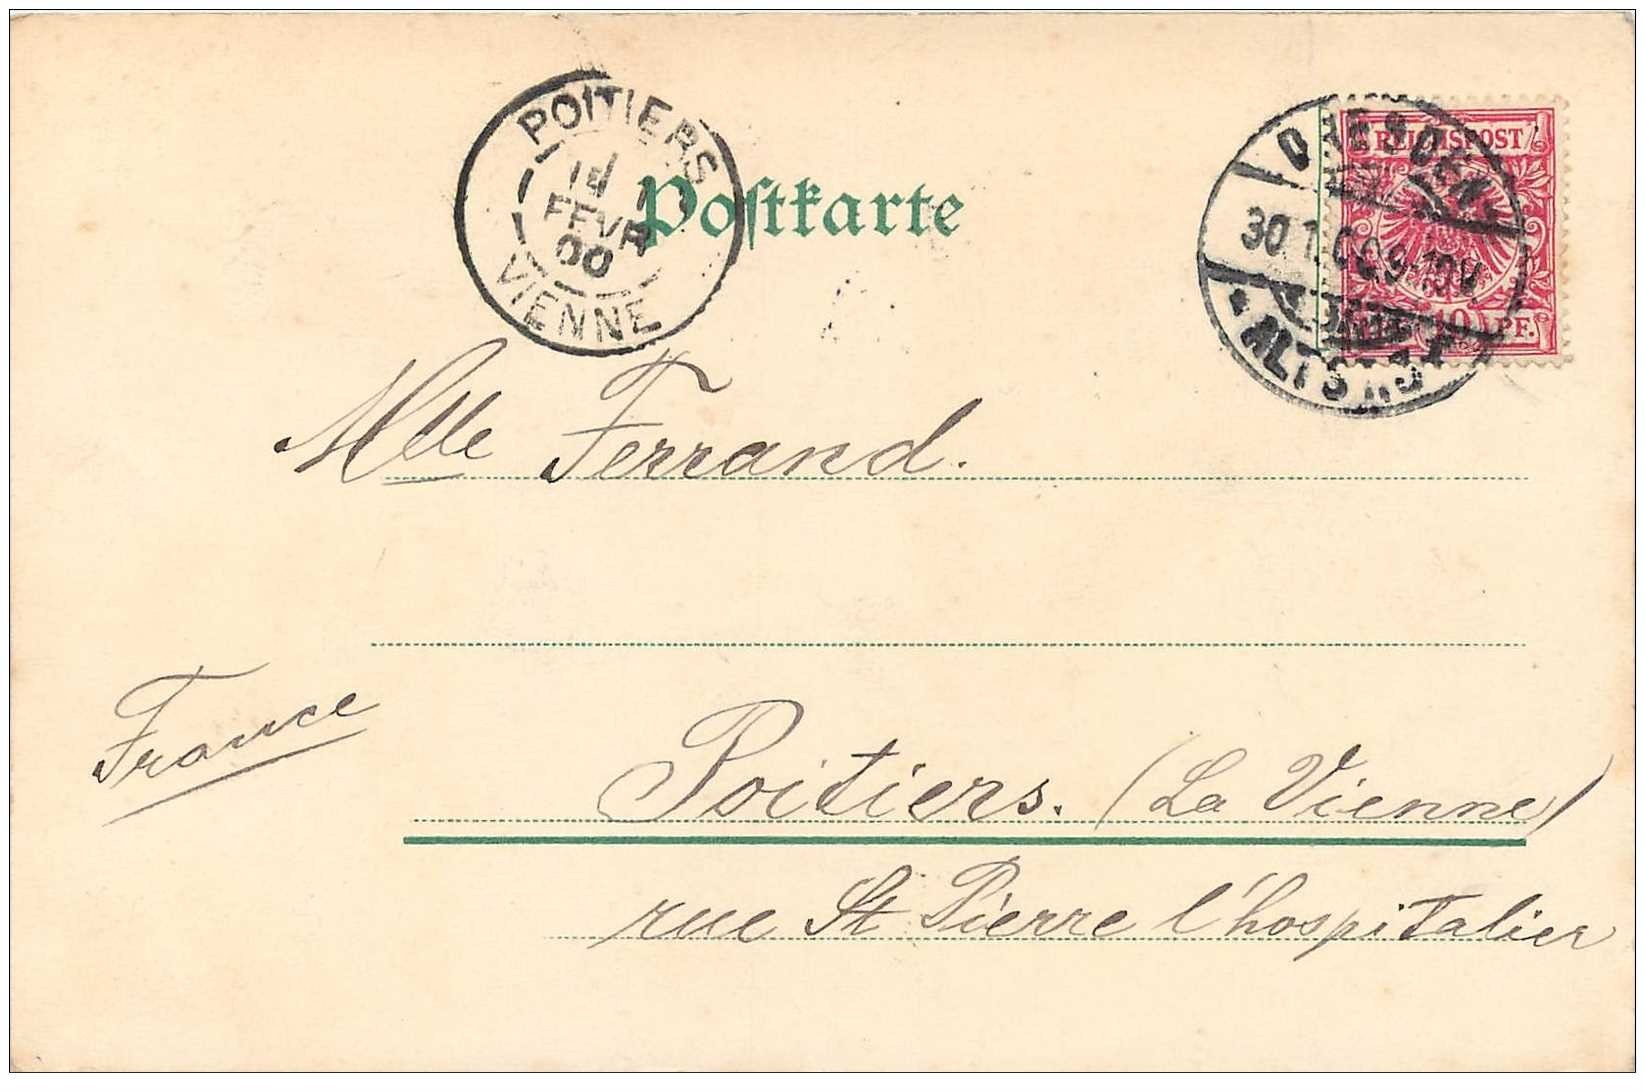 POITIERS
FEVR
00
VIENNE
Postkarte
DRESDEN
30.1.00.9-10V.
ALTST.
REICHSPOST
10 PF.
Mlle Ferrand.
France
Poitiers. (La Vienne)
rue St Pierre l'hospitalier